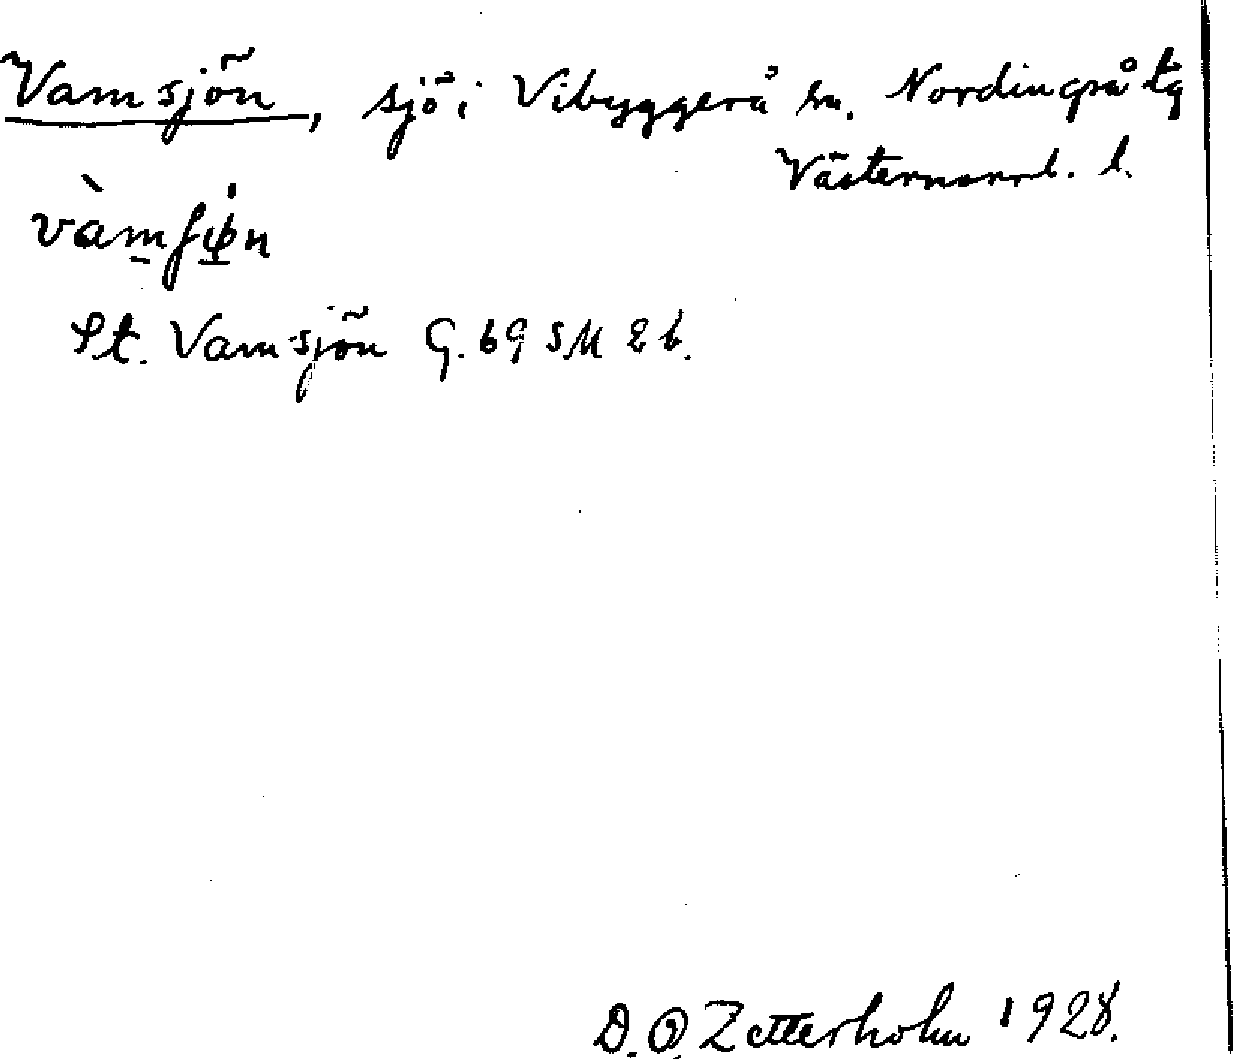 Vamsjön, sjö i Vibyggerå sn. Nordingrå tg
Västernorrl. l.
St. Vamsjön G. 69 SM 2 b.
D. O. Zetterholm 1928.